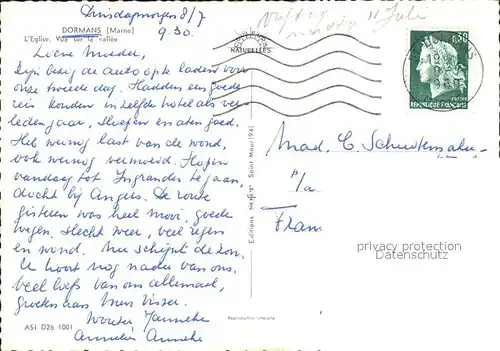 Dinsdagmorgen 8/7
9.30.
vrijdag 11 Juli
DORMANS [Marne]
L'Eglise. Vue sur la vallée
NATURELLES
0,30
REPUBLIQUE FRANÇAISE
Lieve Moeder,
Zijn bezig de auto op te laden voor
onze tweede dag. Hadden een goede
reis konden in zelfde hotel als ver-
leden jaar, sliepen en aten goed.
Heb weinig last van de wond,
ook weinig vermoeid. Hopen
vandaag tot Ingrandes te gaan,
dicht bij Angers. De route
gisteren was heel mooi, goede
wegen, slecht weer, veel regen
en wond. Nu schijnt de zon.
U hoort nog nader van ons.
Veel liefs van ons allemaal,
groeten aan Mevr Visser.
Wouter Janneke
Annelies Anneke
Mad. C.
p/a
Fran
Editions
Saint Maur (94)
privacy protection
Datenschutz
ASI D26 1001
Reproduction interdite